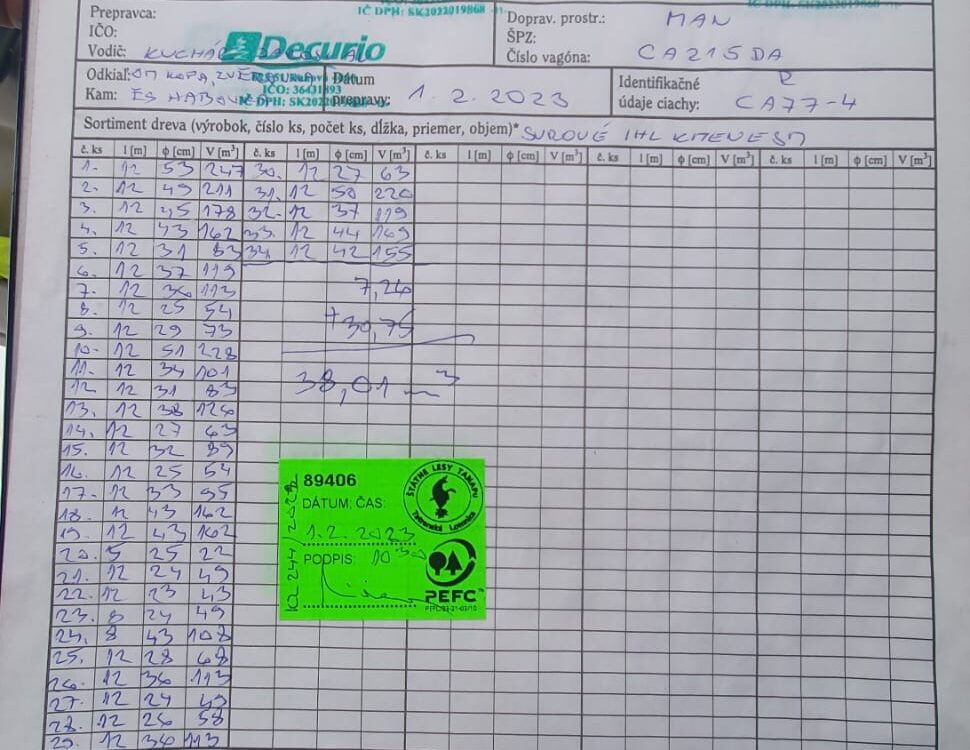 Prepravca:
IČ DPH: SK2022019868
IČO:
Vodič: KUCHÁR
Decurio
Doprav. prostr.: MAN
ŠPZ:
Číslo vagóna: CA215DA
Odkiaľ: OM KOPA,
IČO: 36431893
IČ DPH: SK202
Kam: ES HABOVKA
Dátum
prepravy: 1.2.2023
Identifikačné
údaje ciachy: CA77-4
Sortiment dreva (výrobok, číslo ks, počet ks, dĺžka, priemer, objem)* SUROVÉ IHL KMENE ST
č. ks l [m] ϕ [cm] V [m³] č. ks l [m] ϕ [cm] V [m³] č. ks l [m] ϕ [cm] V [m³] č. ks l [m] ϕ [cm] V [m³] č. ks l [m] ϕ [cm] V [m³]
1. 12 53 247 30. 12 27 63
2. 12 49 211 31. 12 50 220
3. 12 45 178 32. 12 37 119
4. 12 43 162 33. 12 44 169
5. 12 31 83 34 12 42 155
6. 12 37 119
7. 12 36 113 7,26
8. 12 25 54
9. 12 29 73 +30,75
10. 12 51 228
11. 12 34 101 38,01 m³
12 12 31 83
13. 12 38 126
14. 12 27 63
15. 12 32 89
16. 12 25 54
17. 12 33 95
18. 12 43 162
19. 12 43 162
20. 5 25 22
21. 12 24 49
22. 12 23 43
23. 8 24 49
24. 8 43 108
25. 12 28 68
26. 12 36 113
27. 12 24 49
28. 12 26 58
29. 12 36 113
89406
DÁTUM, ČAS:
1.2.2023
PODPIS: 10 30
ŠTÁTNE LESY TANAPU
Tatranská Lomnica
PEFC™